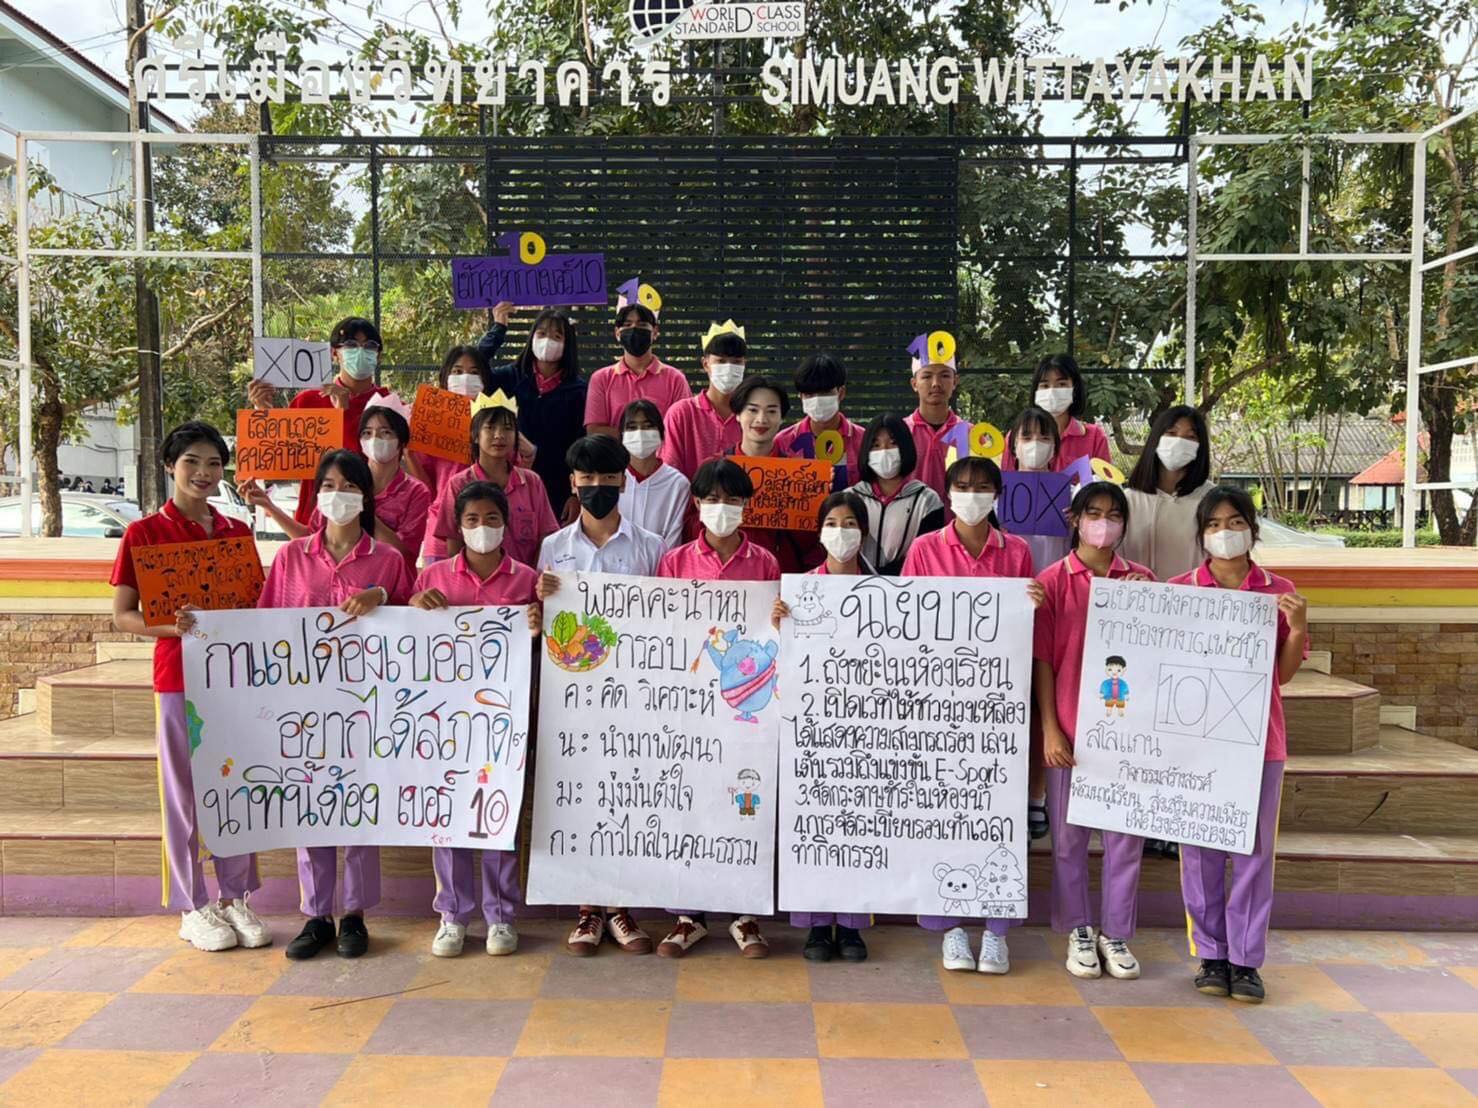 WORLD-CLASS
STANDARD SCHOOL
ศรีเมืองวิทยาคาร
SIMUANG WITTAYAKHAN
10
10
10
10
10
เลือกเถอะ
คนดีปีนี้
10X
กาแฟต้องเบอร์ดี้
อยากได้สภาดีๆ
นาทีนี้ต้อง เบอร์ 10
ten
พรรคคะน้าหมู
กรอบ
ค : คิด วิเคราะห์
น : นำมาพัฒนา
ม : มุ่งมั่นตั้งใจ
ก : ก้าวไกลในคุณธรรม
นโยบาย
1. ถังขยะในห้องเรียน
2. เปิดเวทีให้ชาวม่วงเหลือง
ได้แสดงความสามารถร้อง เล่น
เต้น รวมถึงแข่งขัน E-Sports
3. จัดกระดาษชำระในห้องน้ำ
4. การจัดระเบียบรองเท้าเวลา
ทำกิจกรรม
5. เปิดรับฟังความคิดเห็น
ทุกช่องทาง IG, เฟซบุ๊ก
10X
สโลแกน
กิจกรรมสร้างสรรค์
พัฒนาผู้เรียน ส่งเสริมความเพียร
เพื่อโรงเรียนของเรา